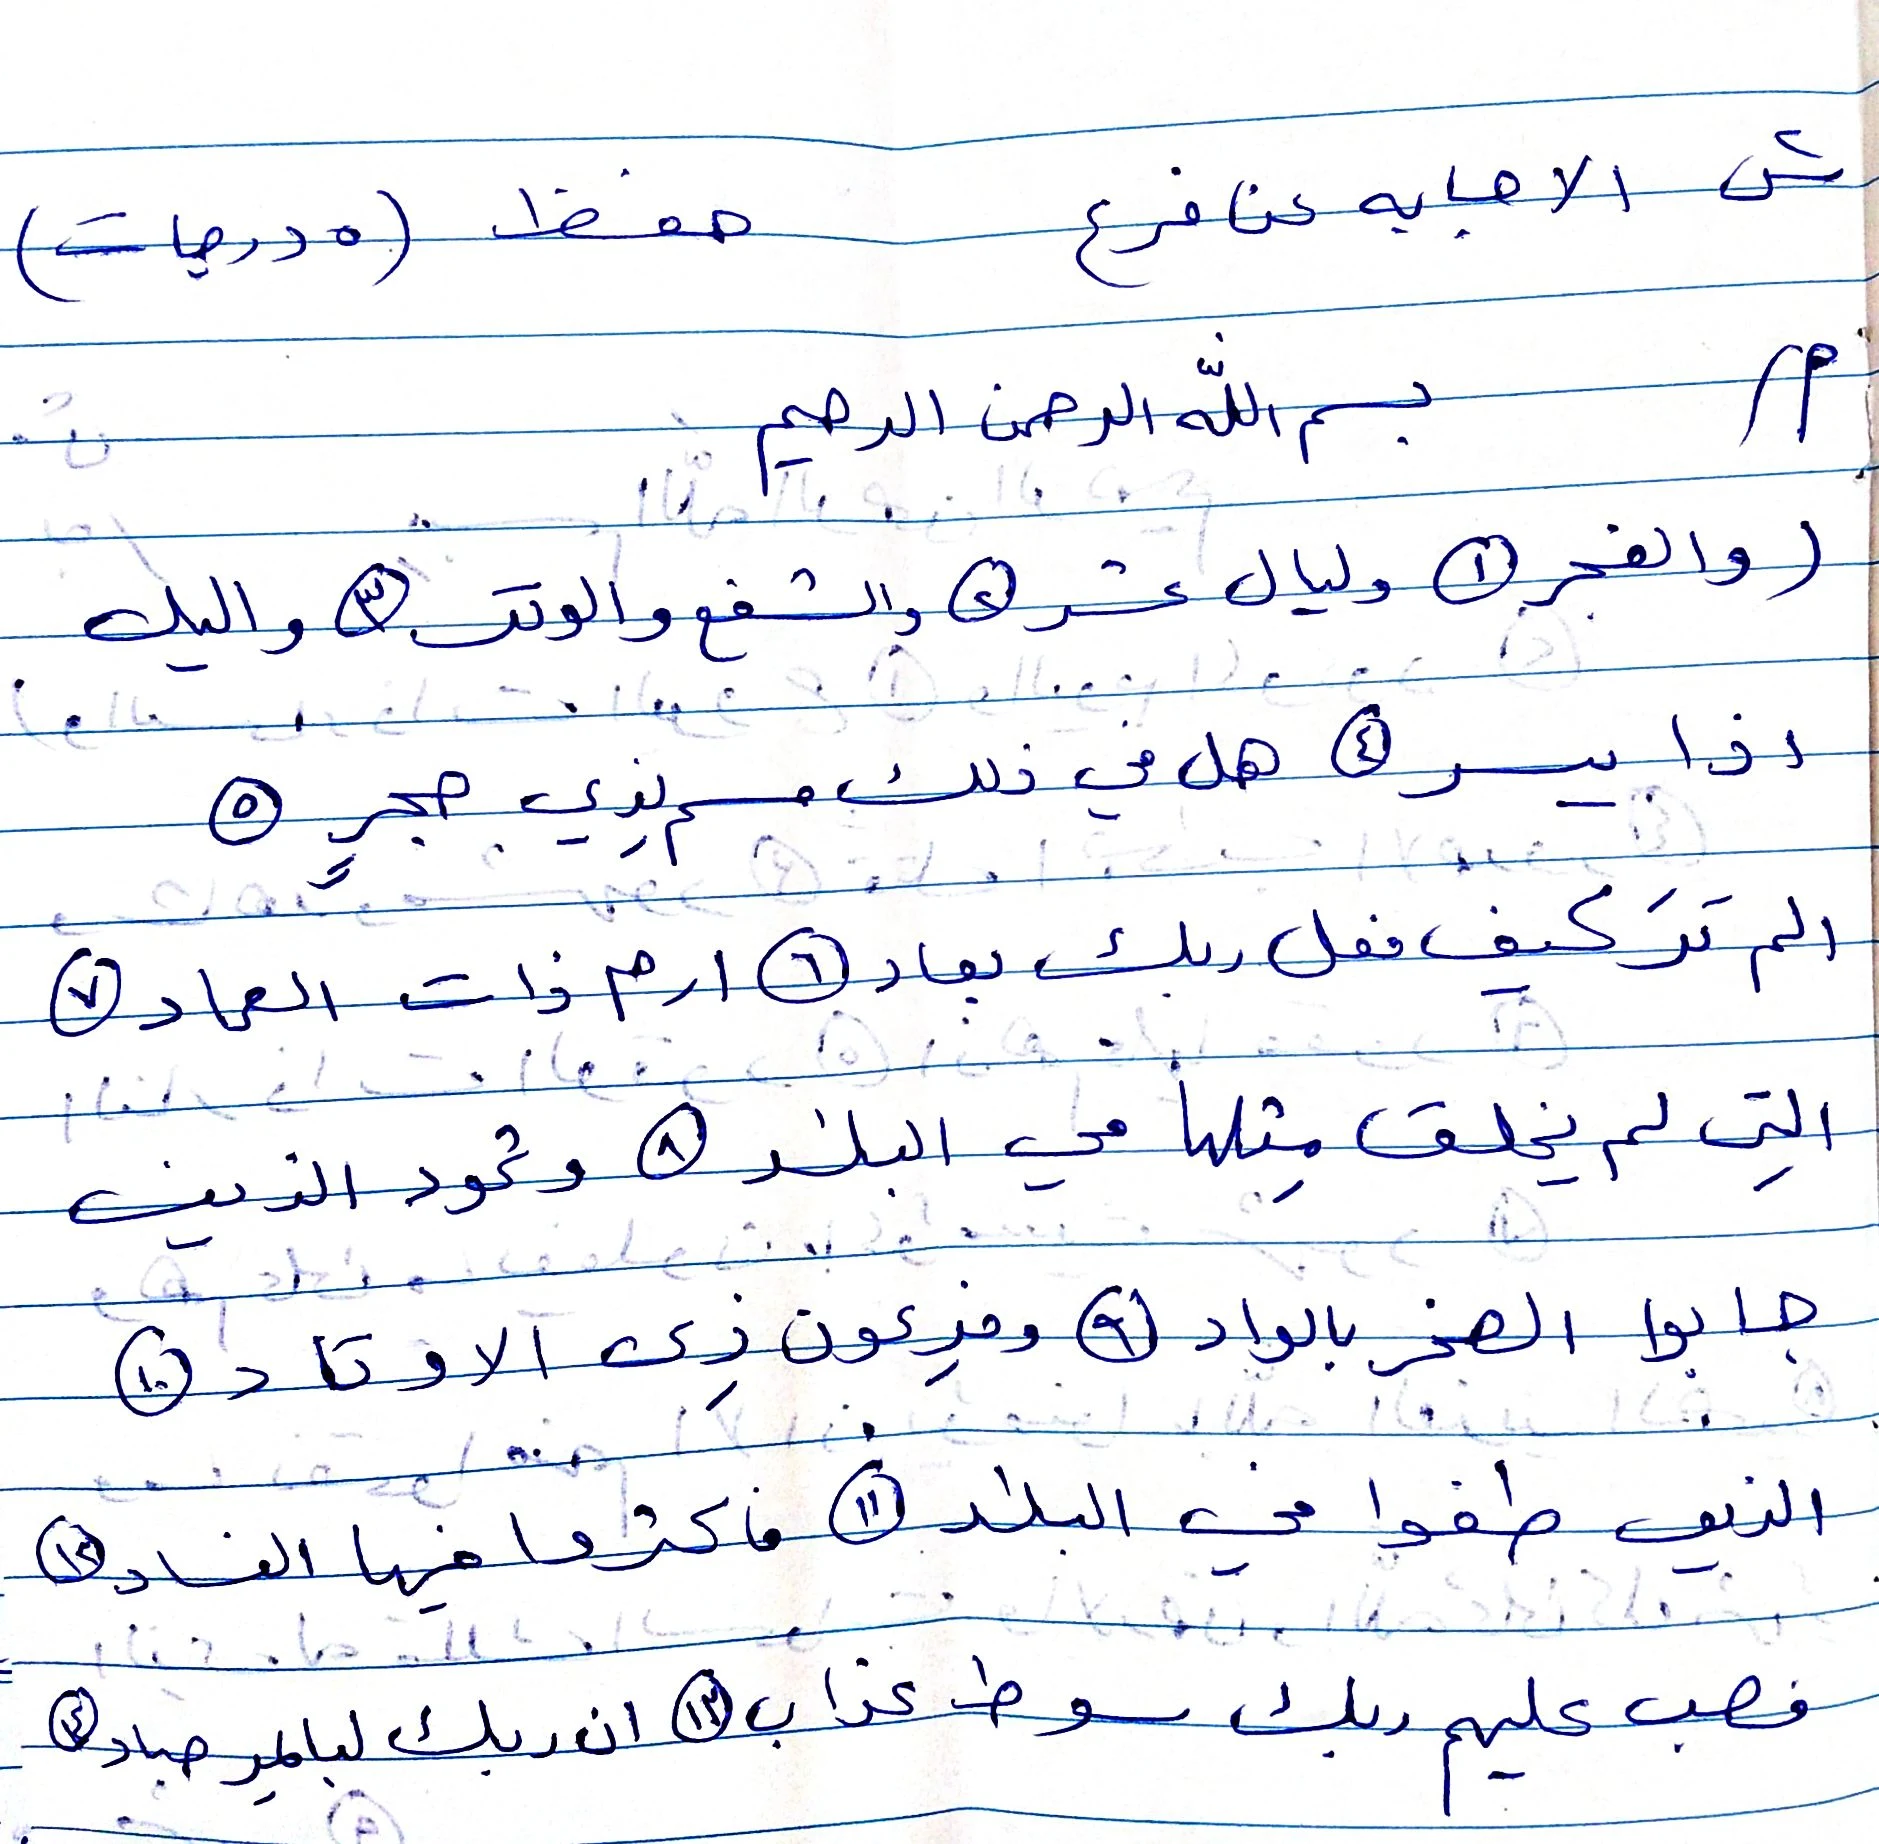 س٢ الاجابه عن فرع حفظ (٥ درجات)
٢/ بسم الله الرحمن الرحيم
(والفجر ① وليال عشر ② والشفع والوتر ③ واليل
اذا يسر ④ هل في ذلك قسم لِذي حجرٍ ⑤
الم تَرَ كيف فعل ربك بعاد ⑥ ارم ذات العماد ⑦
التِي لم يخلق مِثلها في البلد ⑧ وثمود الذين
جابوا الصخر بالواد ⑨ وفرِعون ذِي الاوتاد ⑩
الذين طغوا في البلد ⑪ فاكثروا فيها الفساد ⑫
فصب عليهم ربك سوط عذاب ⑬ ان ربك لبالمِرصاد ⑭